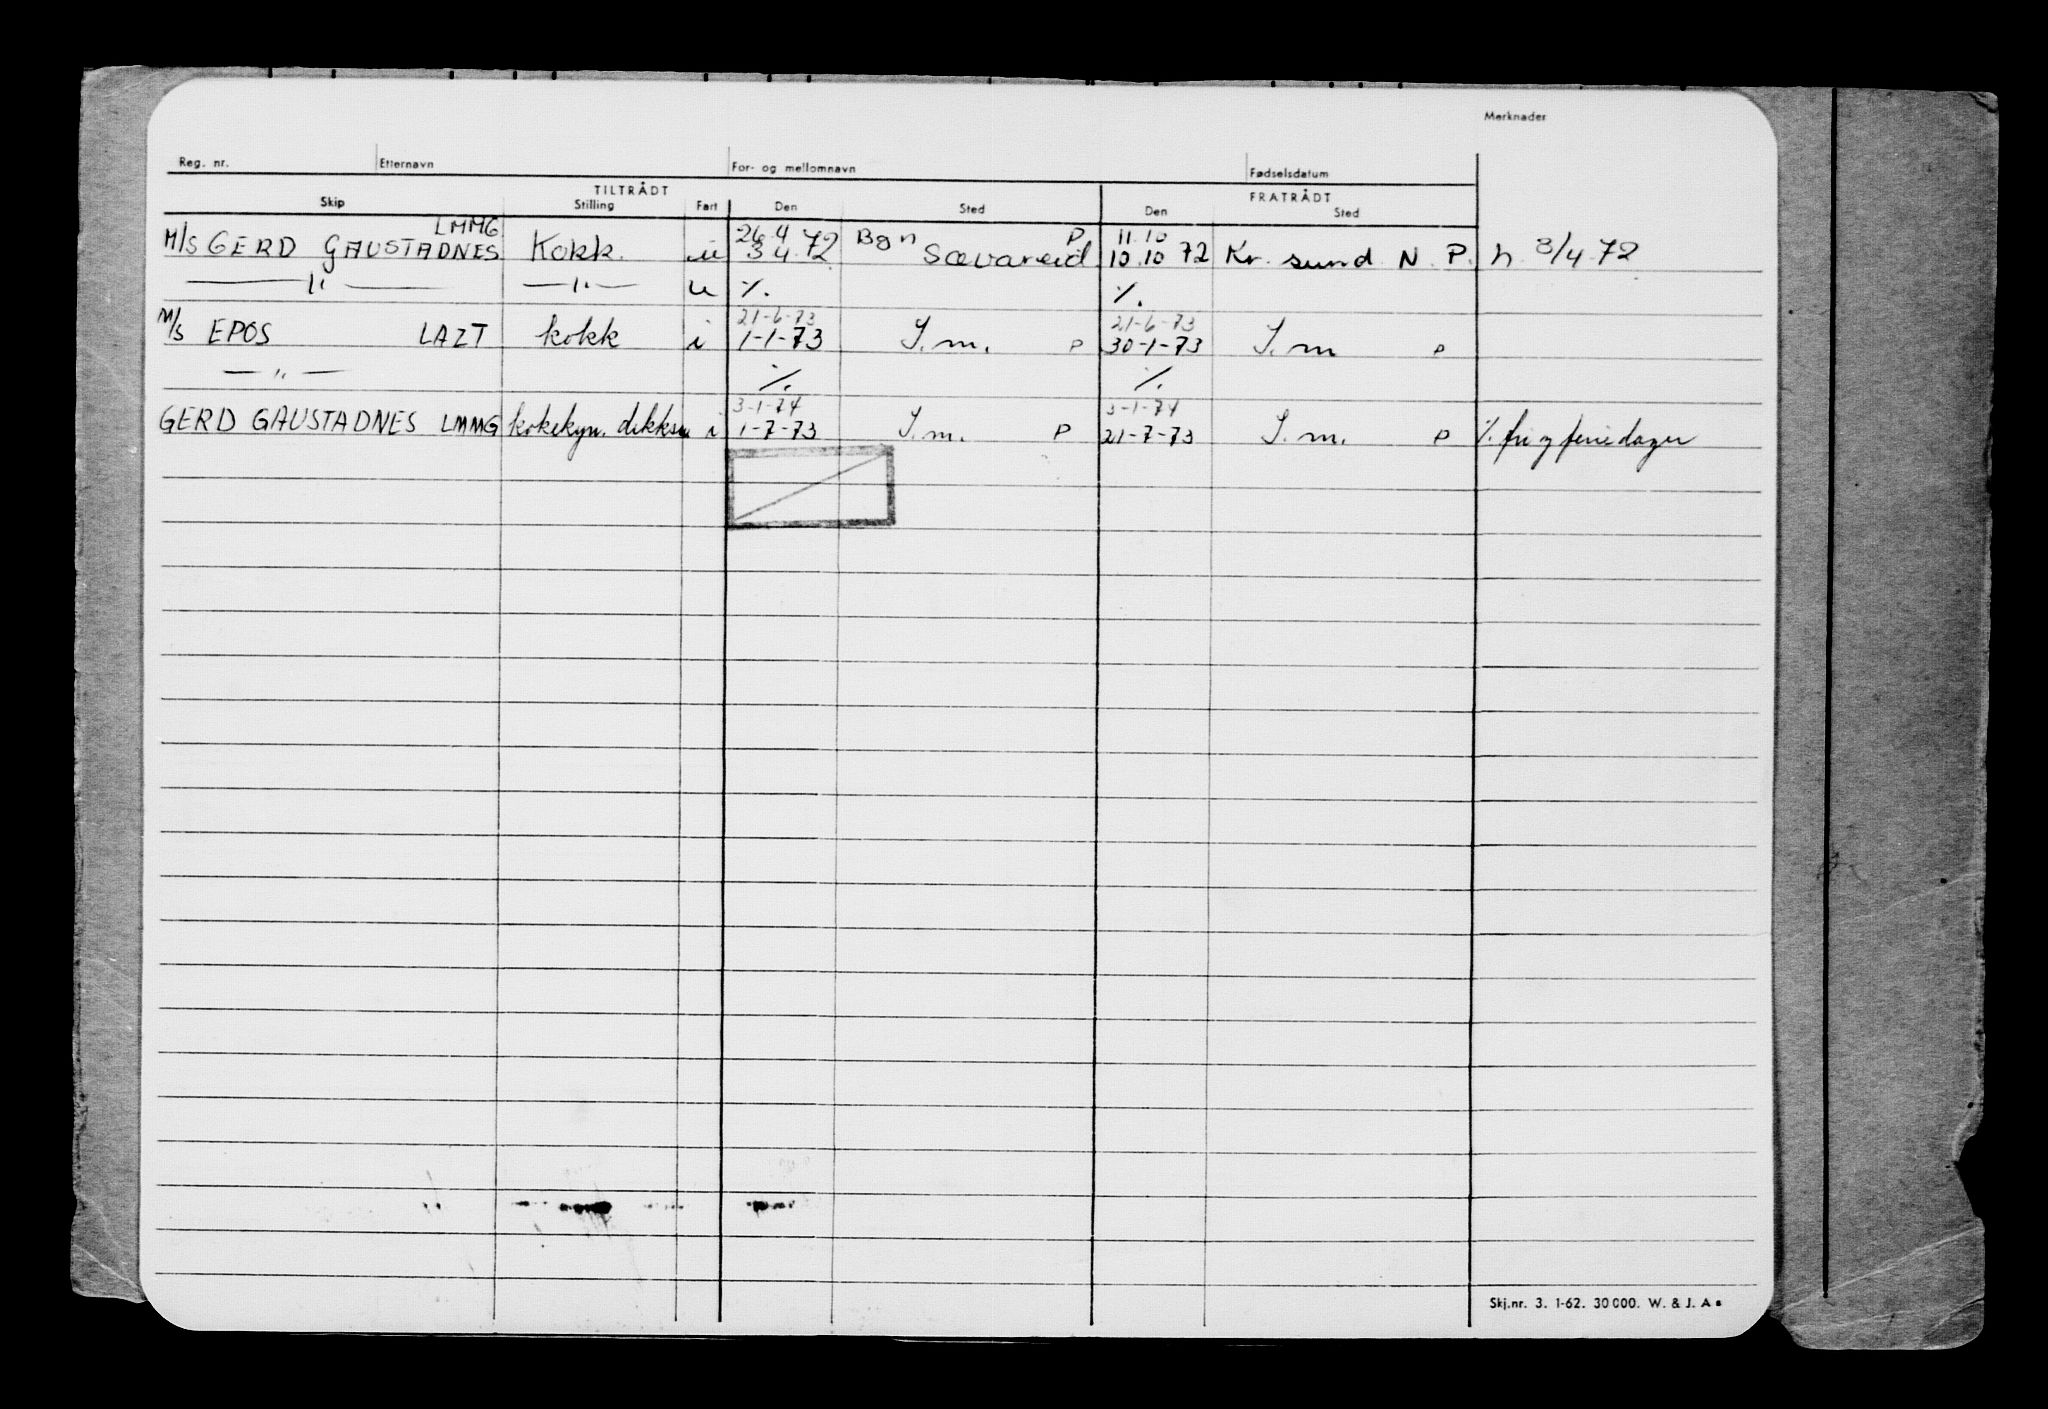 Merknader
Reg. nr. Etternavn For- og mellomnavn Fødselsdatum
TILTRÅDT FRATRÅDT
Skip Stilling Fart Den Sted Den Sted
LMMG 26.4 Bgn P 11.10
M/S GERD GAUSTADNES Kokk. iu 3 4 72 Sævareid 10.10 72 Kr. sund N. P. h. 3/4 72
—"— —"— u ./. ./.
21-6-73 21-6-73
M/S EPOS LAZT kokk i 1-1-73 I.m. P 30-1-73 I.m P
—"— ./. ./.
3-1-74 3-1-74
GERD GAUSTADNES LMMG i 1-7-73 I.m. P 21-7-73 I.m. P ./. fri og feriedager
Skj.nr. 3. 1-62. 30000. W. & J. As